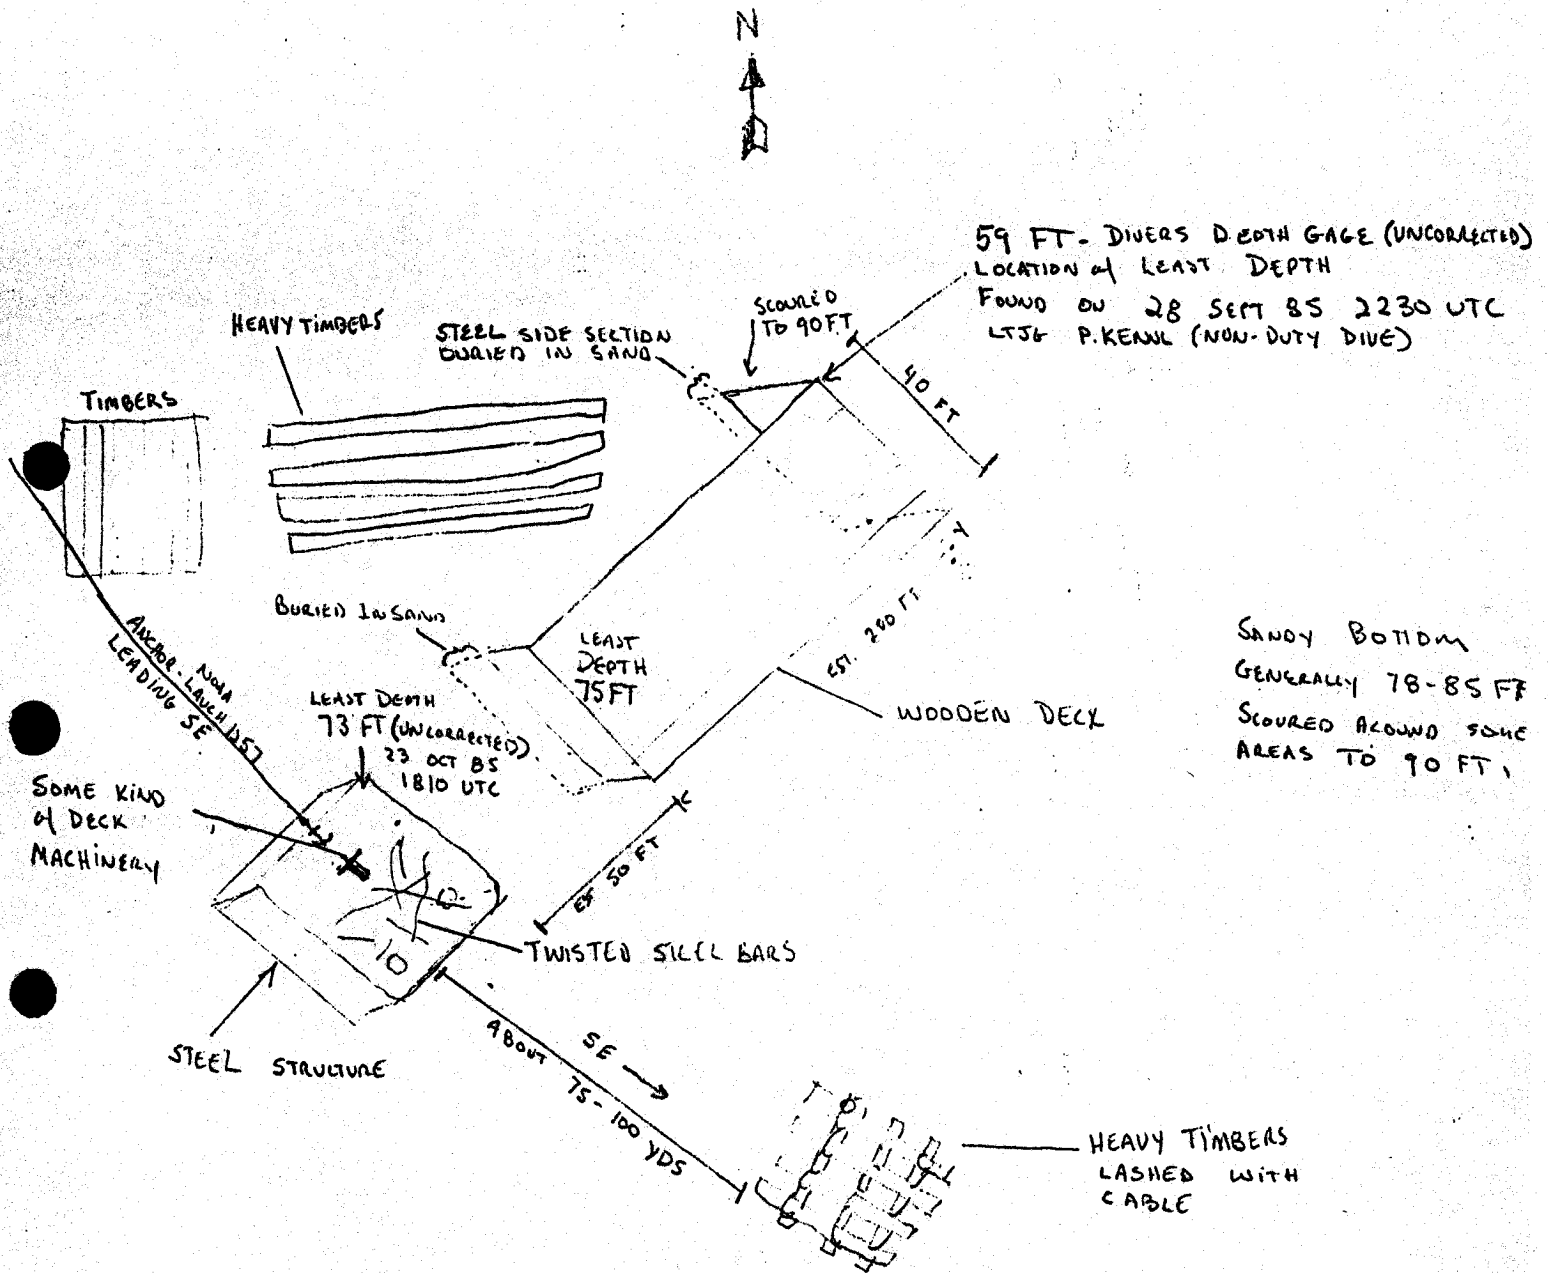 N
59 FT- DIVERS DEPTH GAGE (UNCORRECTED)
LOCATION of LEAST DEPTH
FOUND ON 28 SEPT 85 2230 UTC
LTJG (NON-DUTY DIVE)
SCOURED
TO 90 FT
40 FT
HEAVY TIMBERS
STEEL SIDE SECTION
BURIED IN SAND
TIMBERS
BURIED IN SAND
LEAST
DEPTH
75 FT
EST. 200 FT
WOODEN DECK
SANDY BOTTOM
GENERALLY 78-85 FT
SCOURED AROUND SOME
AREAS TO 90 FT.
ANCHOR - NOAA
LAUNCH 1257
LEADING SE
LEAST DEPTH
73 FT (UNCORRECTED)
23 OCT 85
1810 UTC
SOME KIND
of DECK
MACHINERY
EST 50 FT
TWISTED STEEL BARS
STEEL STRUCTURE
ABOUT 75-100 YDS
SE
HEAVY TIMBERS
LASHED WITH
CABLE